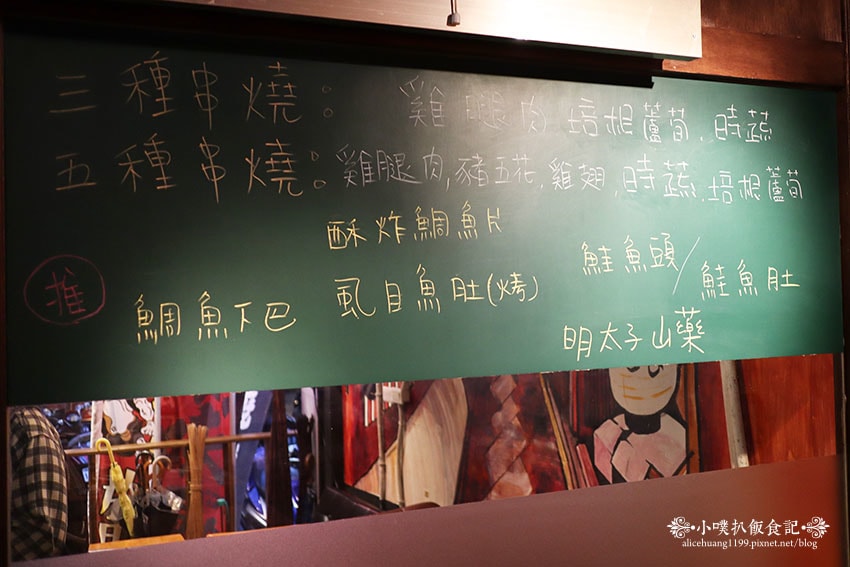 三種串燒: 雞腿肉 培根蘆筍、時蔬
五種串燒: 雞腿肉,豬五花,雞翅,時蔬,培根蘆筍
酥炸鯛魚片
推
鯛魚下巴
虱目魚肚(烤)
鮭魚頭/鮭魚肚
明太子山藥
小噗扒飯食記
alicehuang1199.pixnet.net/blog